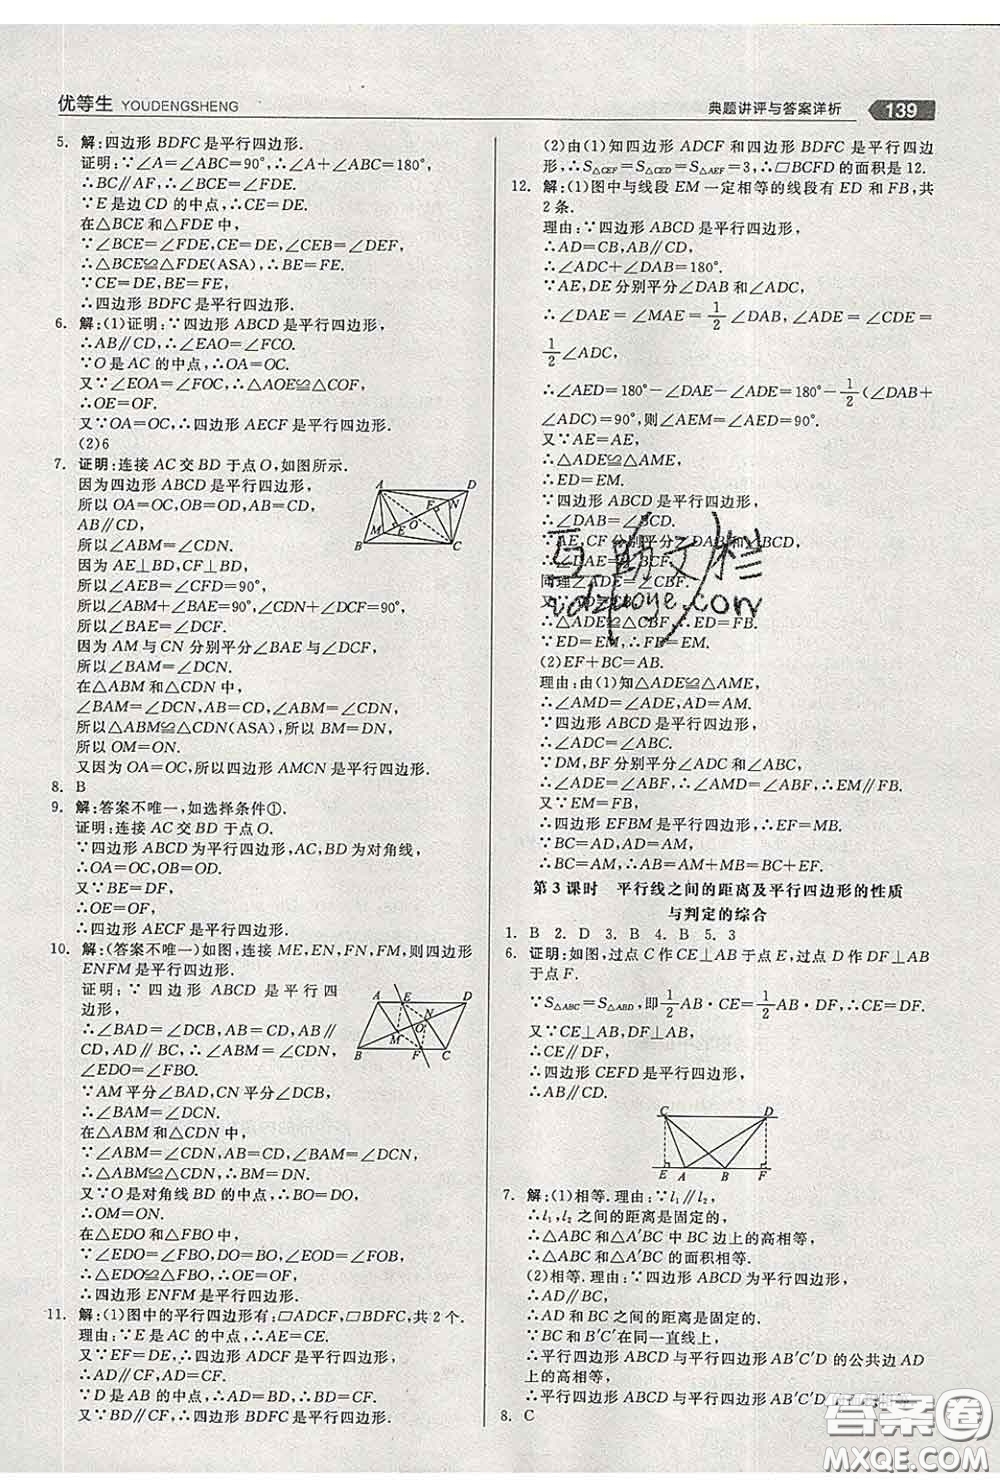 优等生 YOUDENGSHENG
典题讲评与答案详析 139
5. 解:四边形 BDFC 是平行四边形.
证明:∵∠A=∠ABC=90°,∴∠A+∠ABC=180°,
∴BC∥AF,∴∠BCE=∠FDE.
∵E 是边 CD 的中点,∴CE=DE.
在△BCE 和△FDE 中,
∵∠BCE=∠FDE,CE=DE,∠CEB=∠DEF,
∴△BCE≌△FDE(ASA),∴BE=FE.
∵CE=DE,BE=FE,
∴四边形 BDFC 是平行四边形.
6. 解:(1)证明:∵四边形 ABCD 是平行四边形,
∴AB∥CD,∴∠EAO=∠FCO.
∵O 是 AC 的中点,∴OA=OC.
又∵∠EOA=∠FOC,∴△AOE≌△COF,
∴OE=OF.
又∵OA=OC,∴四边形 AECF 是平行四边形.
(2)6
7. 证明:连接 AC 交 BD 于点 O,如图所示.
因为四边形 ABCD 是平行四边形,
所以 OA=OC,OB=OD,AB=CD,
AB∥CD,
所以∠ABM=∠CDN.
因为 AE⊥BD,CF⊥BD,
所以∠AEB=∠CFD=90°,
所以∠ABM+∠BAE=90°,∠CDN+∠DCF=90°,
所以∠BAE=∠DCF.
因为 AM 与 CN 分别平分∠BAE 与∠DCF,
所以∠BAM=∠DCN.
在△ABM 和△CDN 中,
∠BAM=∠DCN,AB=CD,∠ABM=∠CDN,
所以△ABM≌△CDN(ASA),所以 BM=DN,
所以 OM=ON.
又因为 OA=OC,所以四边形 AMCN 是平行四边形.
A D F N O M E B C
8. B
9. 解:答案不唯一,如选择条件①.
证明:连接 AC 交 BD 于点 O.
∵四边形 ABCD 为平行四边形,AC,BD 为对角线,
∴OA=OC,OB=OD.
又∵BE=DF,
∴OE=OF,
∴四边形 AECF 是平行四边形.
10. 解:(答案不唯一)如图,连接 ME,EN,FN,FM,则四边形
ENFM 是平行四边形.
证明:∵四边形 ABCD 是平行四
边形,
∴∠BAD=∠DCB,AB=CD,AB=
CD,AD∥BC,∴∠ABM=∠CDN,
∠EDO=∠FBO.
∵AM 平分∠BAD,CN 平分∠DCB,
∴∠BAM=∠DCN.
在△ABM 和△CDN 中,
∵∠BAM=∠DCN,AB=CD,∠ABM=∠CDN,
∴△ABM≌△CDN,∴BM=DN.
又∵O 是对角线 BD 的中点,∴BO=DO,
∴OM=ON.
在△EDO 和△FBO 中,
∵∠EDO=∠FBO,DO=BO,∠EOD=∠FOB,
∴△EDO≌△FBO,∴OE=OF,
∴四边形 ENFM 是平行四边形.
A E D N O M B F C
11. 解:(1)图中的平行四边形有:▱ADCF,▱BDFC,共 2 个.
理由:∵E 是 AC 的中点,∴AE=CE.
又∵EF=DE,∴四边形 ADCF 是平行四边形,
∴AD∥CF,AD=CF.
∵D 是 AB 的中点,∴AD=BD,
又∵BD∥CF,∴四边形 BDFC 是平行四边形.
(2)由(1)知四边形 ADCF 和四边形 BDFC 是平行四边
形,∴S△CEF=S△CED=S△AEF=3,∴▱BCFD 的面积是 12.
12. 解:(1)图中与线段 EM 一定相等的线段有 ED 和 FB,共
2 条.
理由:∵四边形 ABCD 是平行四边形,
∴AD=CB,AB∥CD,
∴∠ADC+∠DAB=180°.
∵AE,DE 分别平分∠DAB 和∠ADC,
∴∠DAE=∠MAE=1/2∠DAB,∠ADE=∠CDE=
1/2∠ADC,
∴∠AED=180°-∠DAE-∠ADE=180°-1/2(∠DAB+
∠ADC)=90°,则∠AEM=∠AED=90°.
又∵AE=AE,
∴△ADE≌△AME,
∴ED=EM.
∵四边形 ABCD 是平行四边形,
∴∠DAB=∠BCD.
∵AE,CF 分别平分∠DAB 和∠BCD,
∴∠DAE=∠BCF.
同理∠ADE=∠CBF.
又∵AD=CB,
∴△ADE≌△CBF,∴ED=FB.
∵ED=EM,∴FB=EM.
(2)EF+BC=AB.
理由:由(1)知△ADE≌△AME,
∴∠AMD=∠ADE,AD=AM.
∵四边形 ABCD 是平行四边形,
∴∠ADC=∠ABC.
∵DM,BF 分别平分∠ADC 和∠ABC,
∴∠ADE=∠ABF,∴∠AMD=∠ABF,∴EM∥FB.
又∵EM=FB,
∴四边形 EFBM 是平行四边形,∴EF=MB.
∵BC=AD,AD=AM,
∴BC=AM,∴AB=AM+MB=BC+EF.
第 3 课时 平行线之间的距离及平行四边形的性质
与判定的综合
1. B 2. D 3. B 4. B 5. 3
6. 证明:如图,过点 C 作 CE⊥AB 于点 E,过点 D 作 DF⊥AB
于点 F.
∵S△ABC=S△ABD,即1/2AB·CE=1/2AB·DF,∴CE=DF.
又∵CE⊥AB,DF⊥AB,
∴CE∥DF,
∴四边形 CEFD 是平行四边形,
∴AB∥CD.
C D E A B F
7. 解:(1)相等.理由:∵l₁∥l₂,
∴l₁,l₂ 之间的距离是固定的,
∴△ABC 和△A′BC 中 BC 边上的高相等,
∴△ABC 和△A′BC 的面积相等.
(2)相等.理由:∵四边形 ABCD 是平行四边形,
∴AD∥BC,
∴AD 和 BC 之间的距离是固定的.
∵BC 和 B′C′在同一直线上,
∴平行四边形 ABCD 与平行四边形 AB′C′D 的公共边 AD
上的高相等,
∴平行四边形 ABCD 与平行四边形 AB′C′D
8. C
互助文栏
答案圈
MXQE.COM